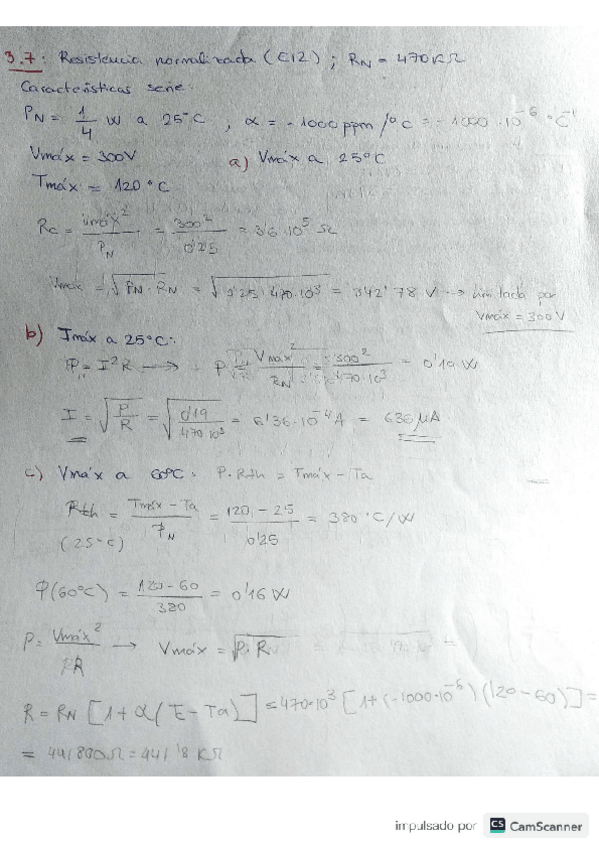 3.7: Resistencia normalizada (E12); RN = 470KΩ
Características serie:
PN = 1/4 W a 25°C, α = -1000ppm/°C = -1000·10^-6 °C^-1
Vmáx = 300V a) Vmáx a 25°C
Tmáx = 120°C
Rc = Vmáx^2/PN = 300^2/0'25 = 3'6·10^5 Ω
Vmáx = √PN·RN = √0'25·470·10^3 = 342'78 V → limitada por
Vmáx = 300V
b) Imáx a 25°C:
P = I^2R → P = Vmáx^2/RN = 300^2/470·10^3 = 0'19 W
I = √P/R = √0'19/470·10^3 = 6'36·10^-4 A = 636 μA
c) Vmáx a 60°C: P·Rth = Tmáx - Ta
Rth = Tmáx - Ta/PN = 120 - 25/0'25 = 380 °C/W
(25°C)
P(60°C) = 120-60/380 = 0'16 W
P = Vmáx^2/R → Vmáx = √P·R
R = RN [1+α(T-Ta)] = 470·10^3 [1+(-1000·10^-6)(120-60)] =
= 441800Ω = 441'8 KΩ
impulsado por CS CamScanner